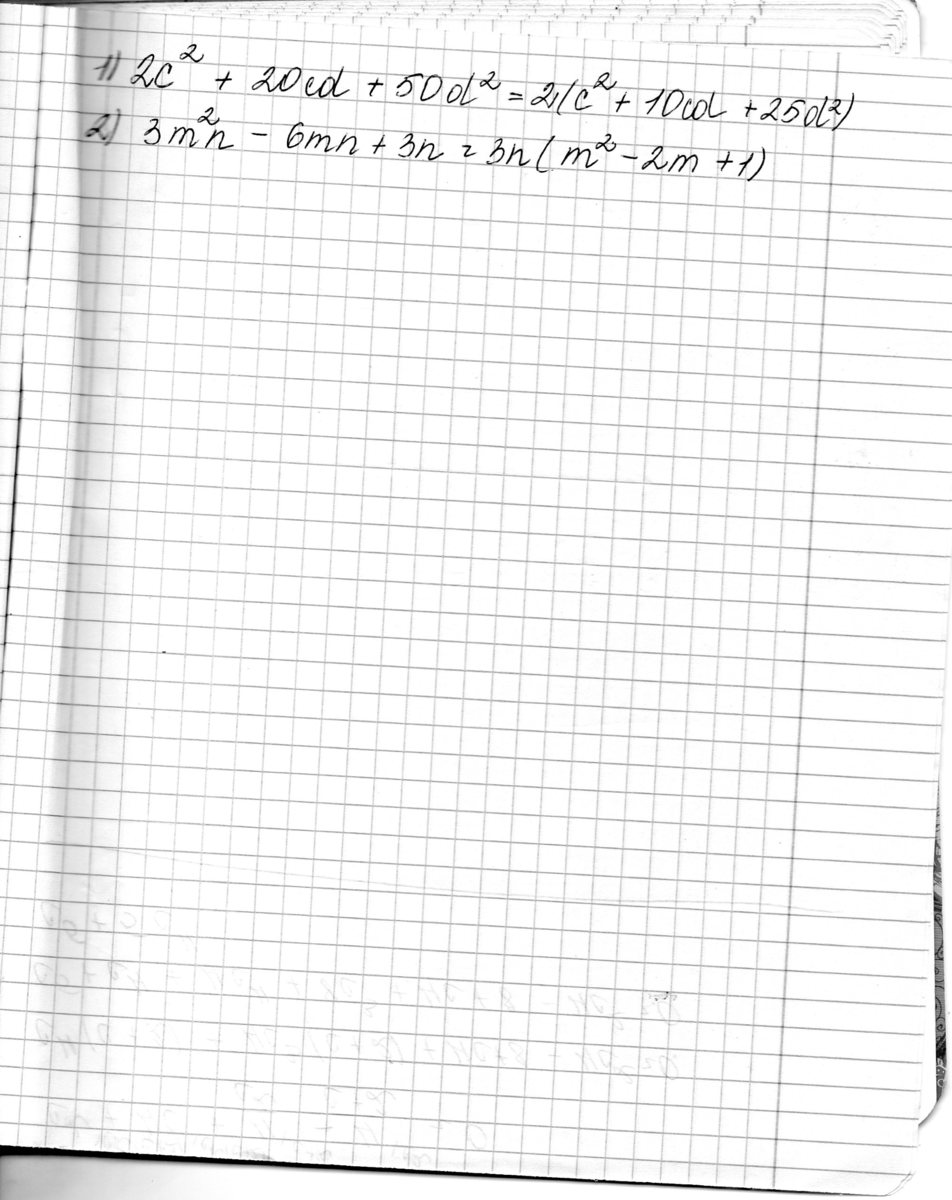 1) 2c² + 20cd + 50d² = 2(c² + 10cd + 25d²)
2) 3m²n - 6mn + 3n = 3n(m² - 2m + 1)